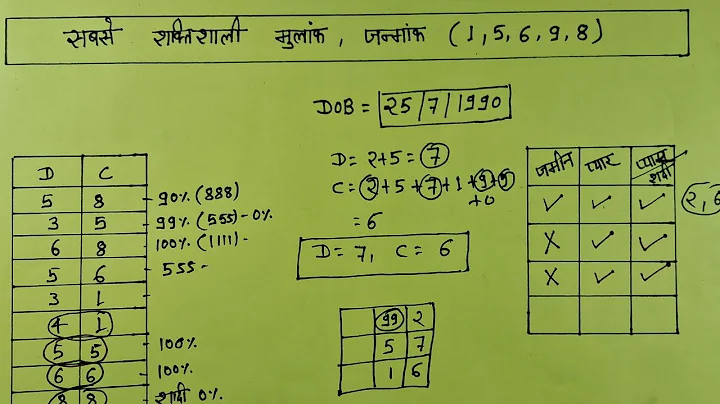 सबसे शक्तिशाली मुलांक, जन्मांक (1, 5, 6, 9, 8)
DOB = 25/7/1990
D = 2+5 = 7
C = 2+5+7+1+9+9
+0
= 6
D = 7, C = 6
D C
5 8 - 90% (888)
3 5 - 99% (555) - 0%
6 8 - 100% (1111) -
5 6 - 555 -
3 1 -
4 1
5 5 - 100%
6 6 - 100%
8 8 - शादी 0%
99 2
5 7
1 6
जमीन प्यार प्यार शादी
✓ ✓ ✓
X ✓ ✓
X ✓ ✓